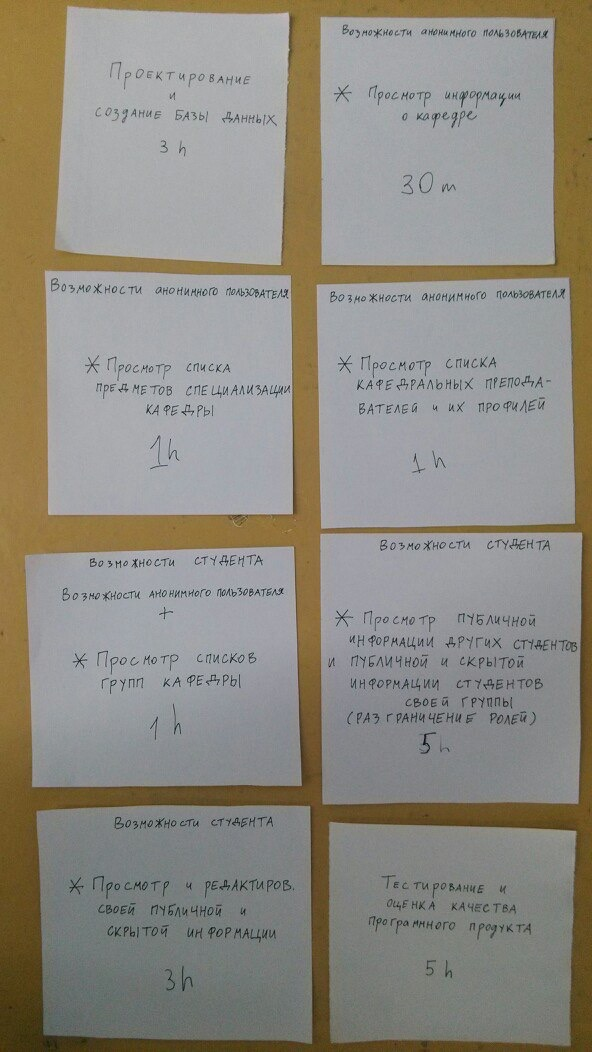 Проектирование
и
создание базы данных
3 h
Возможности анонимного пользователя
* Просмотр информации
о кафедре
30 m
Возможности анонимного пользователя
* Просмотр списка
предметов специализации
кафедры
1h
Возможности анонимного пользователя
* Просмотр списка
кафедральных препода-
вателей и их профилей
1 h
Возможности студента
Возможности анонимного пользователя
+
* Просмотр списков
групп кафедры
1 h
Возможности студента
* Просмотр публичной
информации других студентов
и публичной и скрытой
информации студентов
своей группы
(разграничение ролей)
5h
Возможности студента
* Просмотр и редактиров.
своей публичной и
скрытой информации
3h
Тестирование и
оценка качества
программного продукта
5 h